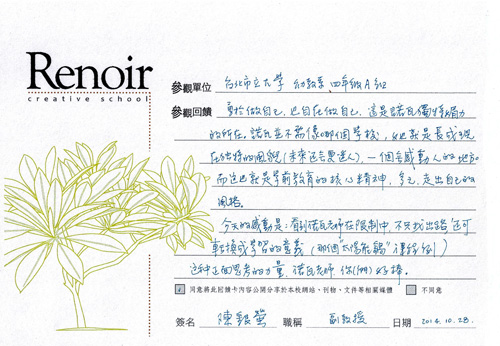 Renoir
creative school
參觀單位 台北市立大學 幼教系 四年級A組
參觀回饋 勇於做自己,也自在做自己,這是諾瓦獨特魅力
的所在。諾瓦並不需像"哪個學校",她就是長成現
在獨特的風貌(未來還會更迷人),一個會感動人的地方
而這也就是學前教育的核心精神,多元,走出自己的
風格。
今天的感動是:看到諾瓦老師在限制中,不只找出路"還可
轉換成學習的意義(那個"太陽無窮"
這種正面思考的力量,諾瓦老師,你(們)好棒。
同意將此回饋卡內容公開分享於本校網站、刊物、文件等相關媒體 不同意
簽名 陳銀螢 職稱 副教授 日期 2014.10.28.